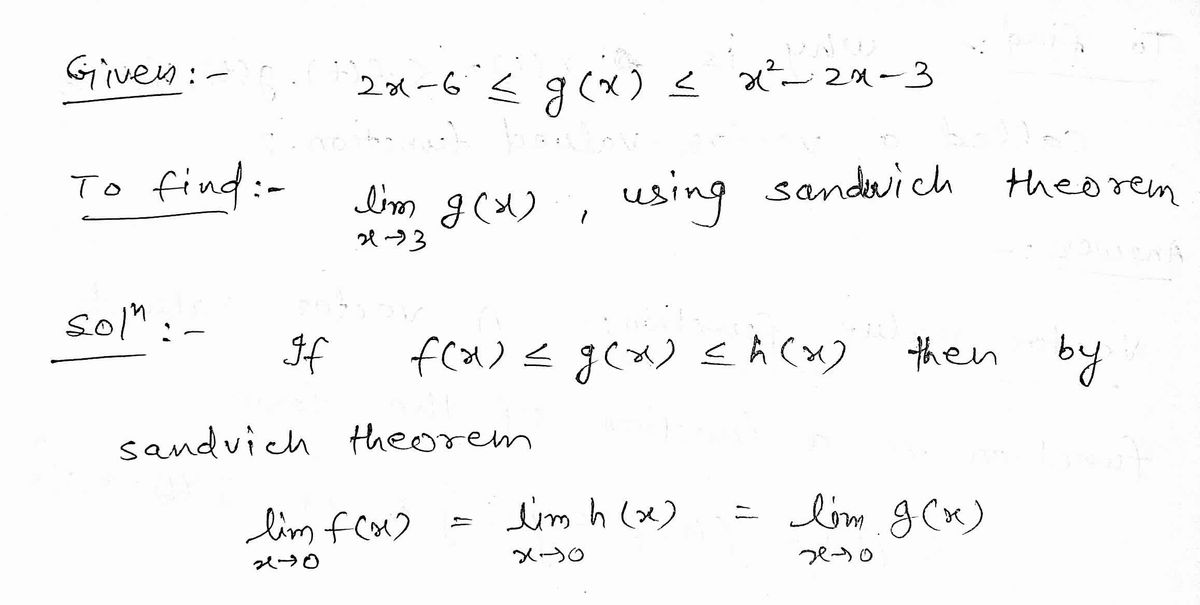 Given :- 2x-6 ≤ g(x) ≤ x²-2x-3
To find :- lim g(x) , using sandwich theorem
x→3
solⁿ :- If f(x) ≤ g(x) ≤ h(x) then by
sandvich theorem
lim f(x) = lim h(x) = lim g(x)
x→0 x→0 x→0